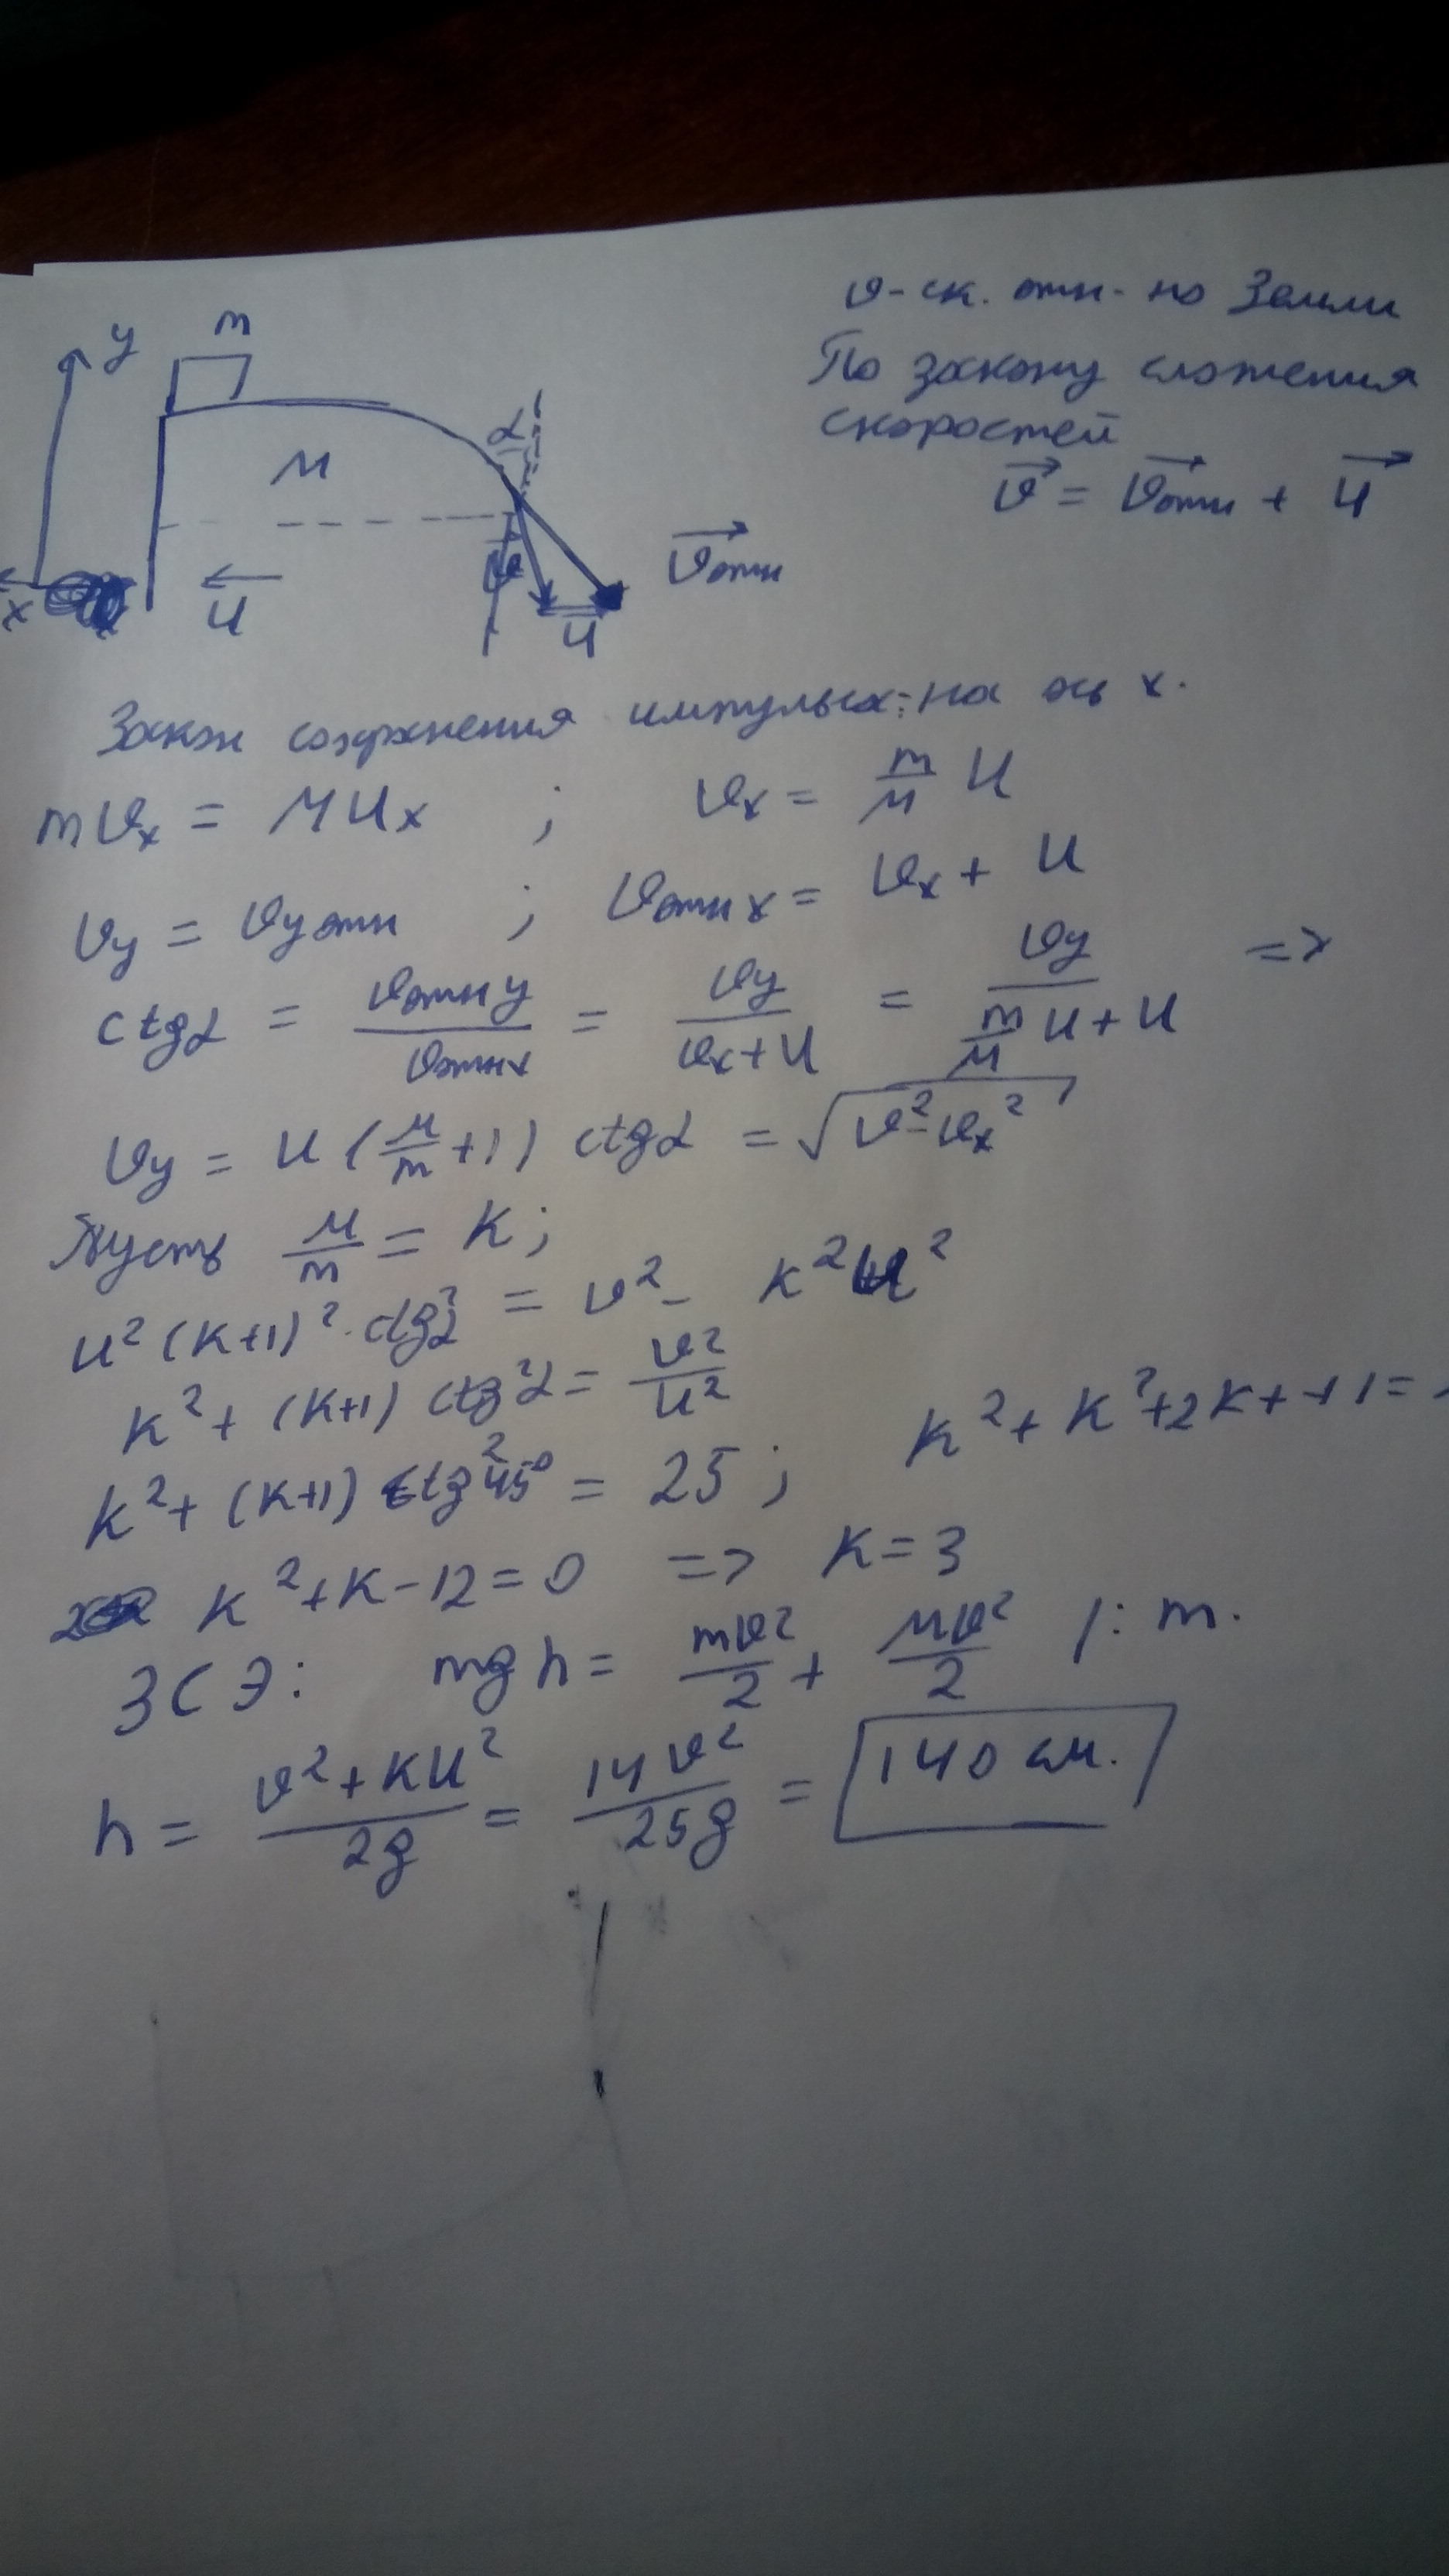 y
m
α
M
x
u
v
u
vотн
v - ск. отн-но Земли
По закону сложения
скоростей
v = vотн + u
Закон сохранения импульса: на ось x.
mvx = Mux ; vx = m/M u
vy = vy отн ; vотн x = vx + u
ctgα = vотн y / vотн x = vy / (vx + u) = vy / (m/M u + u) =>
vy = u (M/m + 1) ctgα = √(v² - vx²)
Пусть M/m = k;
u² (k+1)² · ctg²α = v² - k²u²
k² + (k+1) ctg²α = v²/u²
k² + (k+1) ctg²45° = 25 ; k² + k² + 2k + + 1 =
k² + k - 12 = 0 => k = 3
ЗСЭ: mgh = mv²/2 + Mv²/2 /: m.
h = (v² + ku²)/2g = 14v²/25g = 140 см.